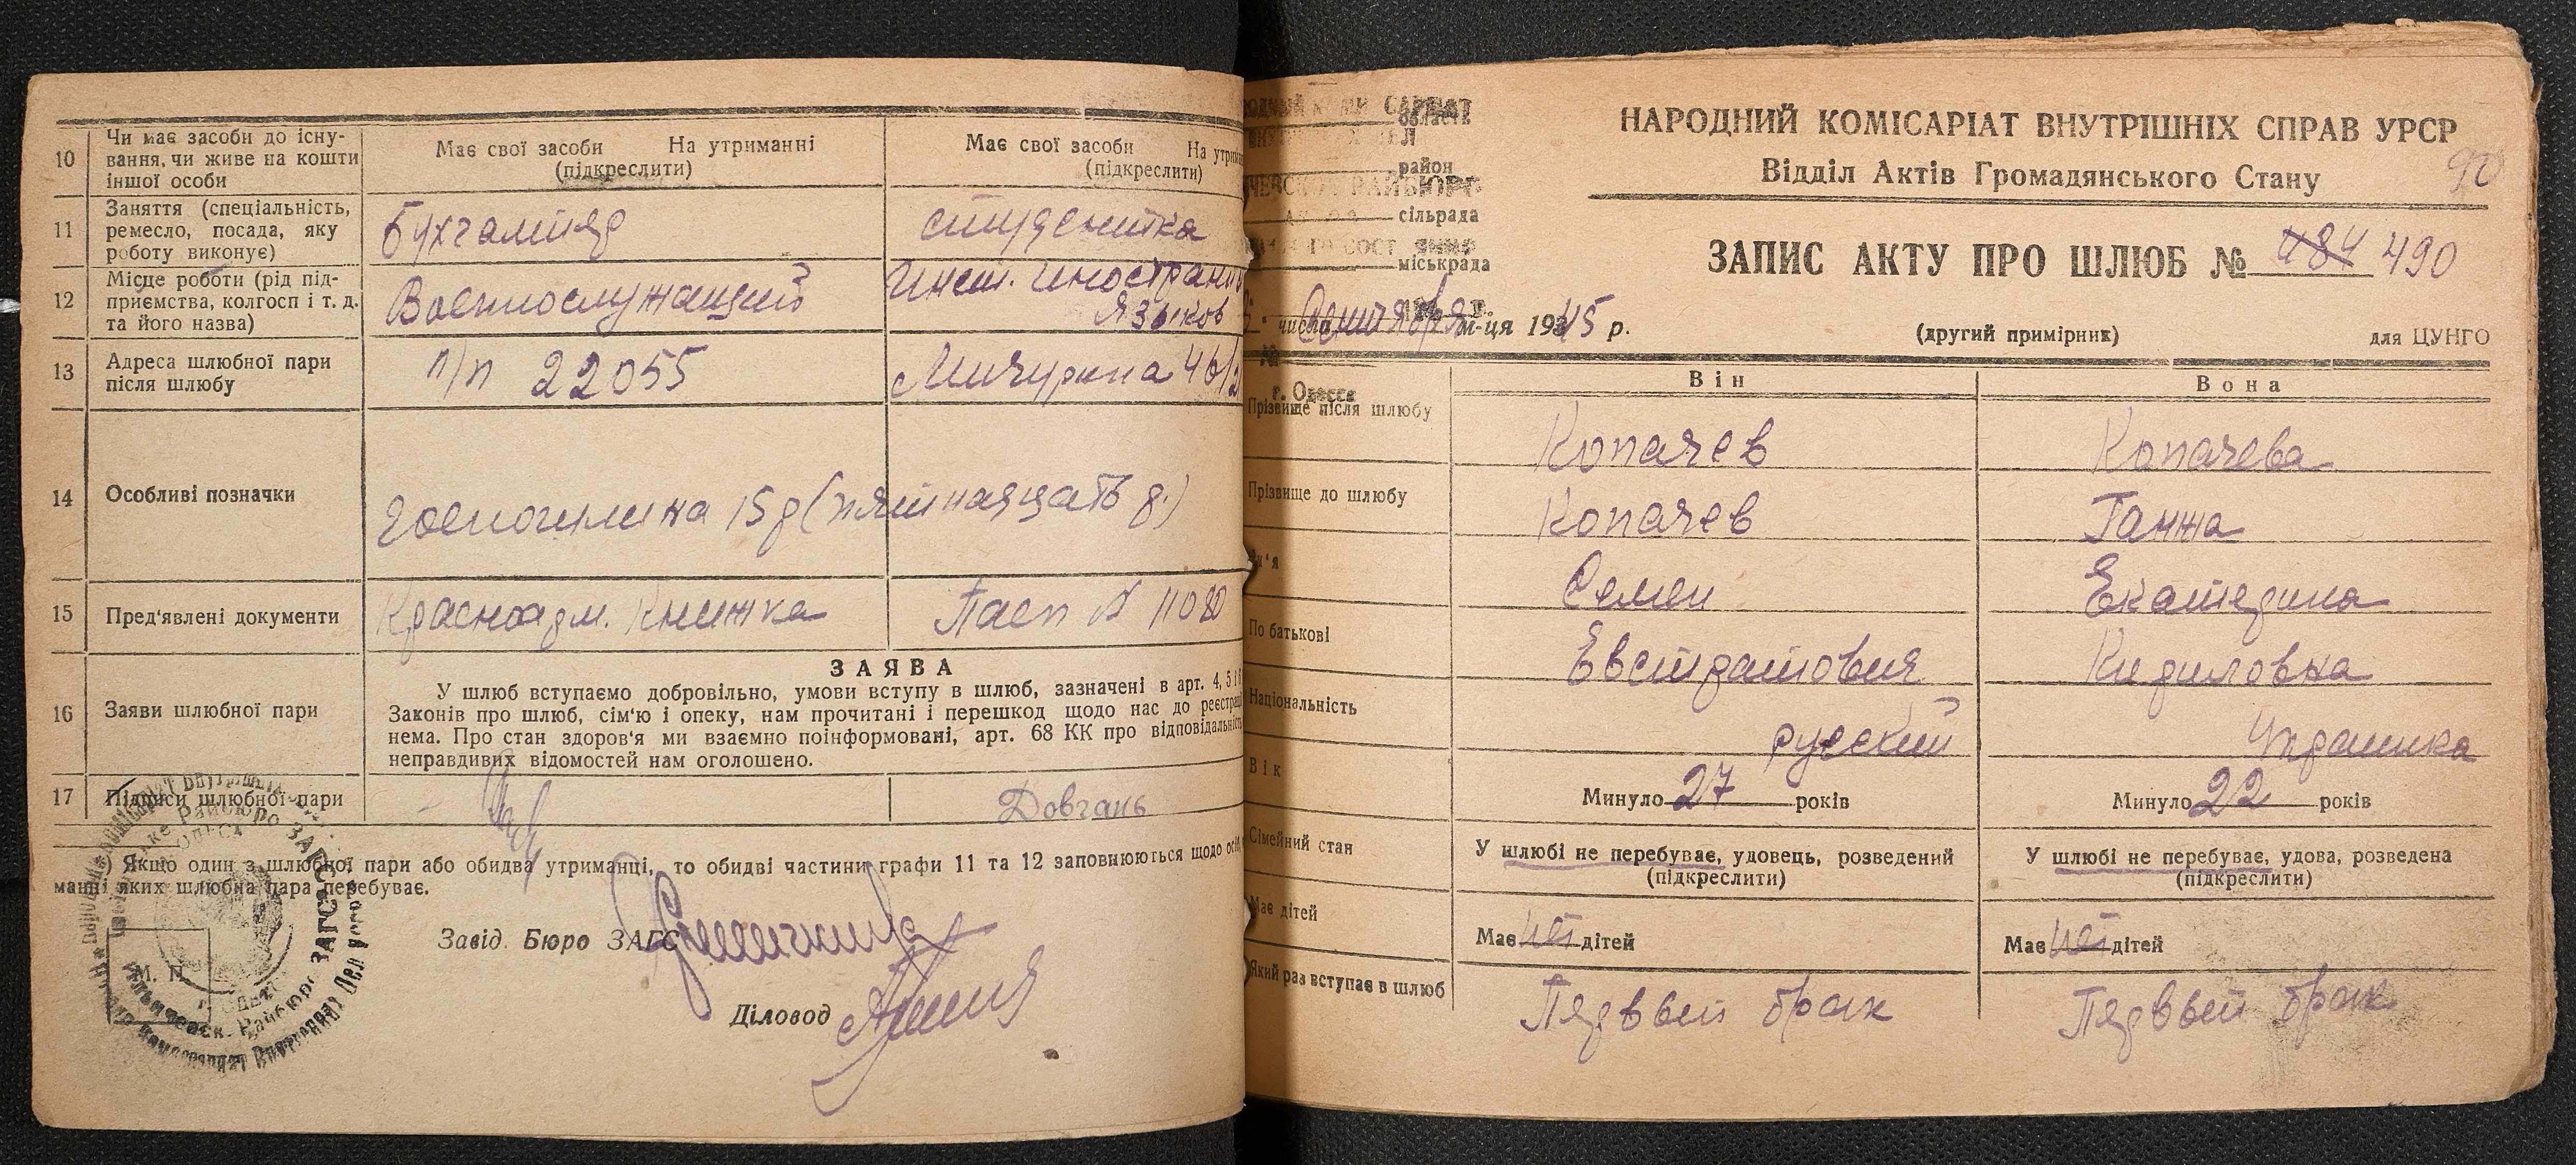 10
Чи має засоби до існу-
вання, чи живе на кошти
іншої особи
Має свої засоби На утриманні
(підкреслити)
Має свої засоби На
(підкреслити)
11
Заняття (спеціальність,
ремесло, посада, яку
роботу виконує)
бухгалтер
студентка
12
Місце роботи (рід під-
приємства, колгосп і т. д.
та його назва)
Военнослужащий
Инст. иностран
языков
13
Адреса шлюбної пари
після шлюбу
п/п 22055
Мичурина 46/
14
Особливі позначки
Госпошлина 15 р (пятнадцать р.)
15
Пред'явлені документи
Красноарм. Книжка
Пасп № 11080
16
Заяви шлюбної пари
ЗАЯВА
У шлюб вступаємо добровільно, умови вступу в шлюб, зазначені в арт. 4, 5 і 6
Законів про шлюб, сім'ю і опеку, нам прочитані і перешкод щодо нас до реєстрації
нема. Про стан здоров'я ми взаємно поінформовані, арт. 68 КК про відповідальність
неправдивих відомостей нам оголошено.
17
Підписи шлюбної пари
Довгань
) Якщо один з шлюбної пари або обидва утриманці, то обидві частини графи 11 та 12 заповнюються щодо осіб,
манці яких шлюбна пара перебуває.
Завід. Бюро ЗАГС
М. П.
Діловод
НАРОДНИЙ КОМІСАРІАТ ВНУТРІШНІХ СПРАВ УРСР
Відділ Актів Громадянського Стану
90
область
район
РАЙБЮРО
сільрада
міськрада
ЗАПИС АКТУ ПРО ШЛЮБ № 484 490
числа Сентября м-ця 1945 р.
(другий примірник)
для ЦУНГО
г. Одесса
Він
Вона
Прізвище після шлюбу
Копачев
Копачева
Прізвище до шлюбу
Копачев
Ганжа
Ім'я
Семен
Екатерина
По батькові
Евстратович
Кириловна
Національність
русский
Украинка
Вік
Минуло 27 років
Минуло 22 років
Сімейний стан
У шлюбі не перебуває, удовець, розведений
(підкреслити)
У шлюбі не перебуває, удова, розведена
(підкреслити)
Має дітей
Має нет дітей
Має нет дітей
Який раз вступає в шлюб
Первый брак
Первый брак